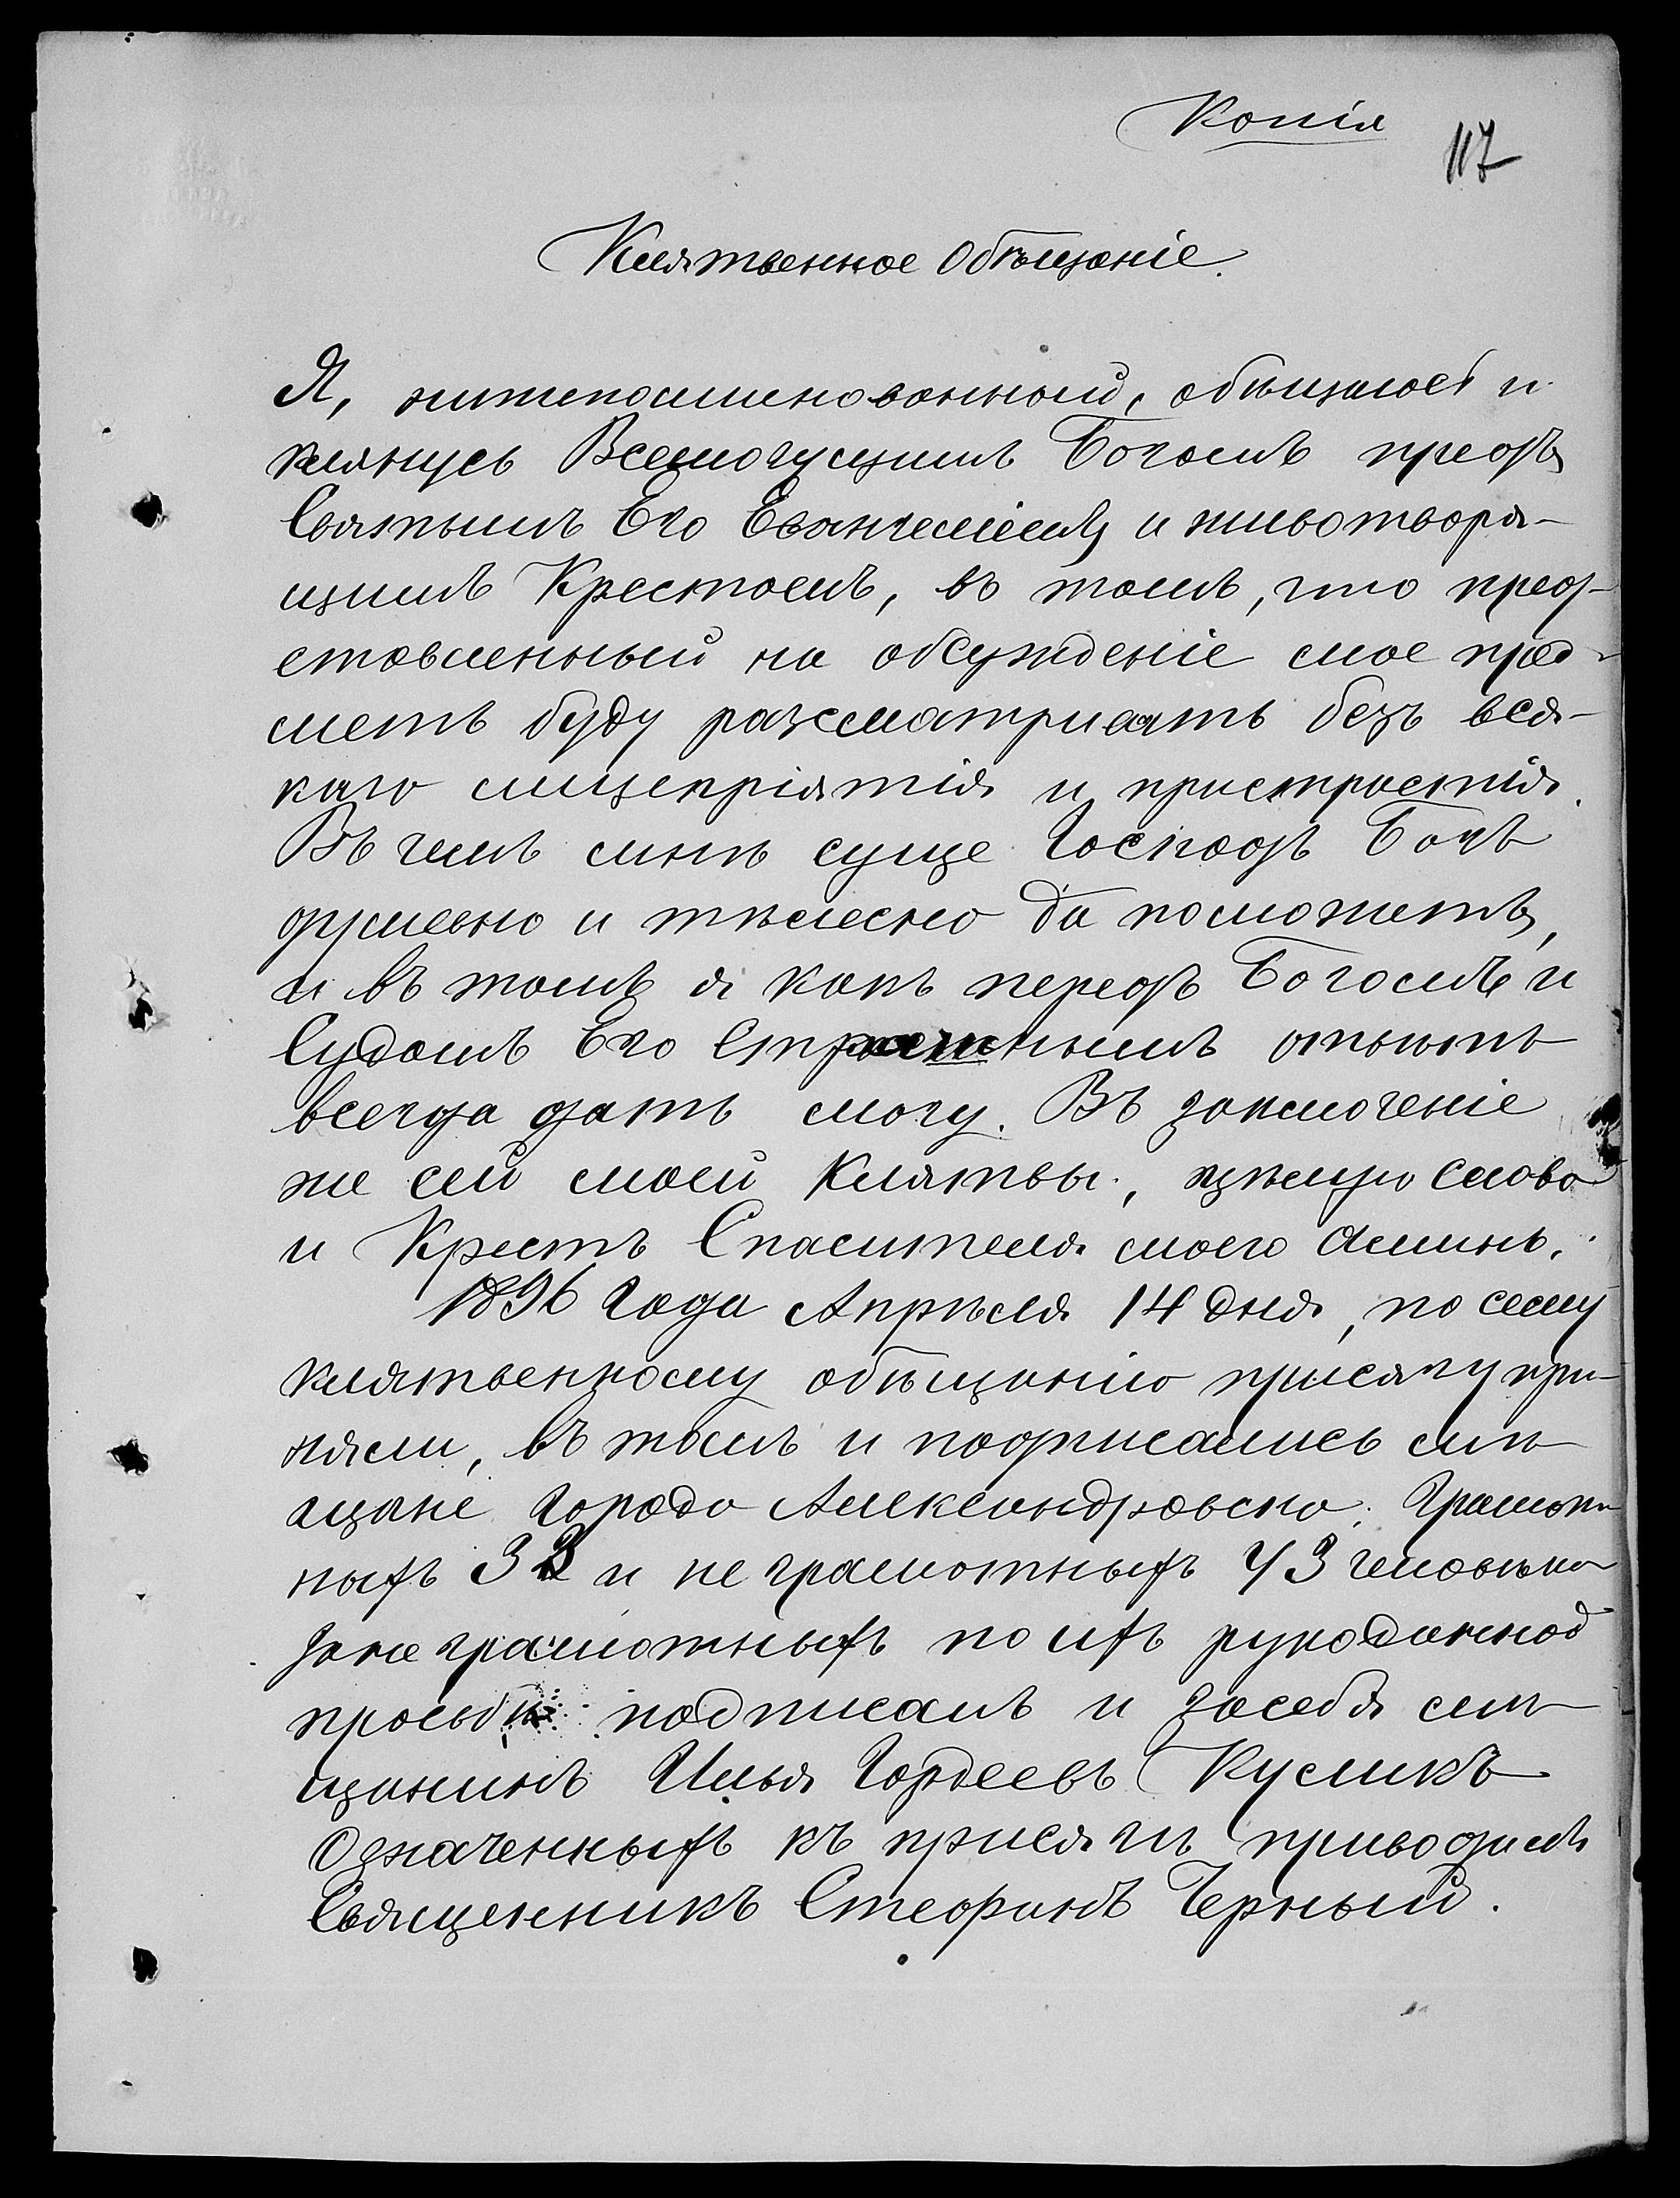 Копія
117
Клятвенное Обѣщаніе.
Я, нижепоименованный, обѣщаюсь и
клянусь Всемогущимъ Богомъ предъ
Святымъ Его Евангеліемъ и животворя-
щимъ Крестомъ, въ томъ, что пред-
ставленный на обсужденіе мое пред-
метъ буду разсматривать безъ вся-
каго лицепріятія и пристрастія.
Въ чемъ мнѣ суще Господь Богъ
душевно и тѣлесно да поможетъ,
и въ томъ я какъ передъ Богомъ и
Судомъ Его Страшнымъ отвѣтъ
всегда дать могу. Въ заключеніе
же сей моей Клятвы, цѣлую Слова
и Крестъ Спасителя моего Аминь.
1896 Года Апрѣля 14 дня, по сему
клятвенному обѣщанію присягу при-
няли, въ томъ и подписались мѣ
щане Города Александровска: Грамот
ныхъ 32 и не грамотныхъ 43 человѣка
за не грамотныхъ по ихъ рукоданной
просьбѣ подписалъ и за себя мѣ
щанинъ Илья Гордеевъ Куликъ
Означенныхъ къ присягѣ приводилъ
Священникъ Стефанъ Черный.